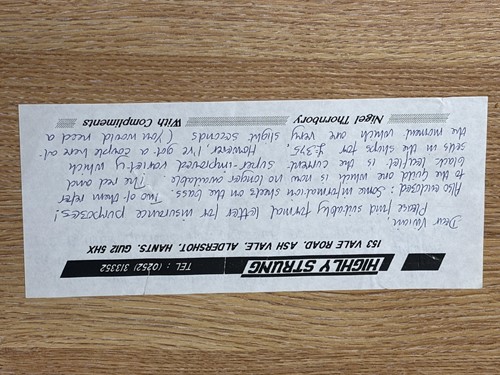 HIGHLY STRUNG
TEL : (0252) 313352
153 VALE ROAD, ASH VALE, ALDERSHOT, HANTS, GU12 5HX
Dear Vivian,
Please find suitably formal letter for insurance purposes!
Also enclosed: Some information sheets on the bass. Two of them refer
to the guild one which is now no longer available. The red and
black leaflet is the current super-improved variety which
sells in the shops for £375. However, I've got a couple here at
the moment which are very slight seconds (You would need a
Nigel Thornbory
With Compliments